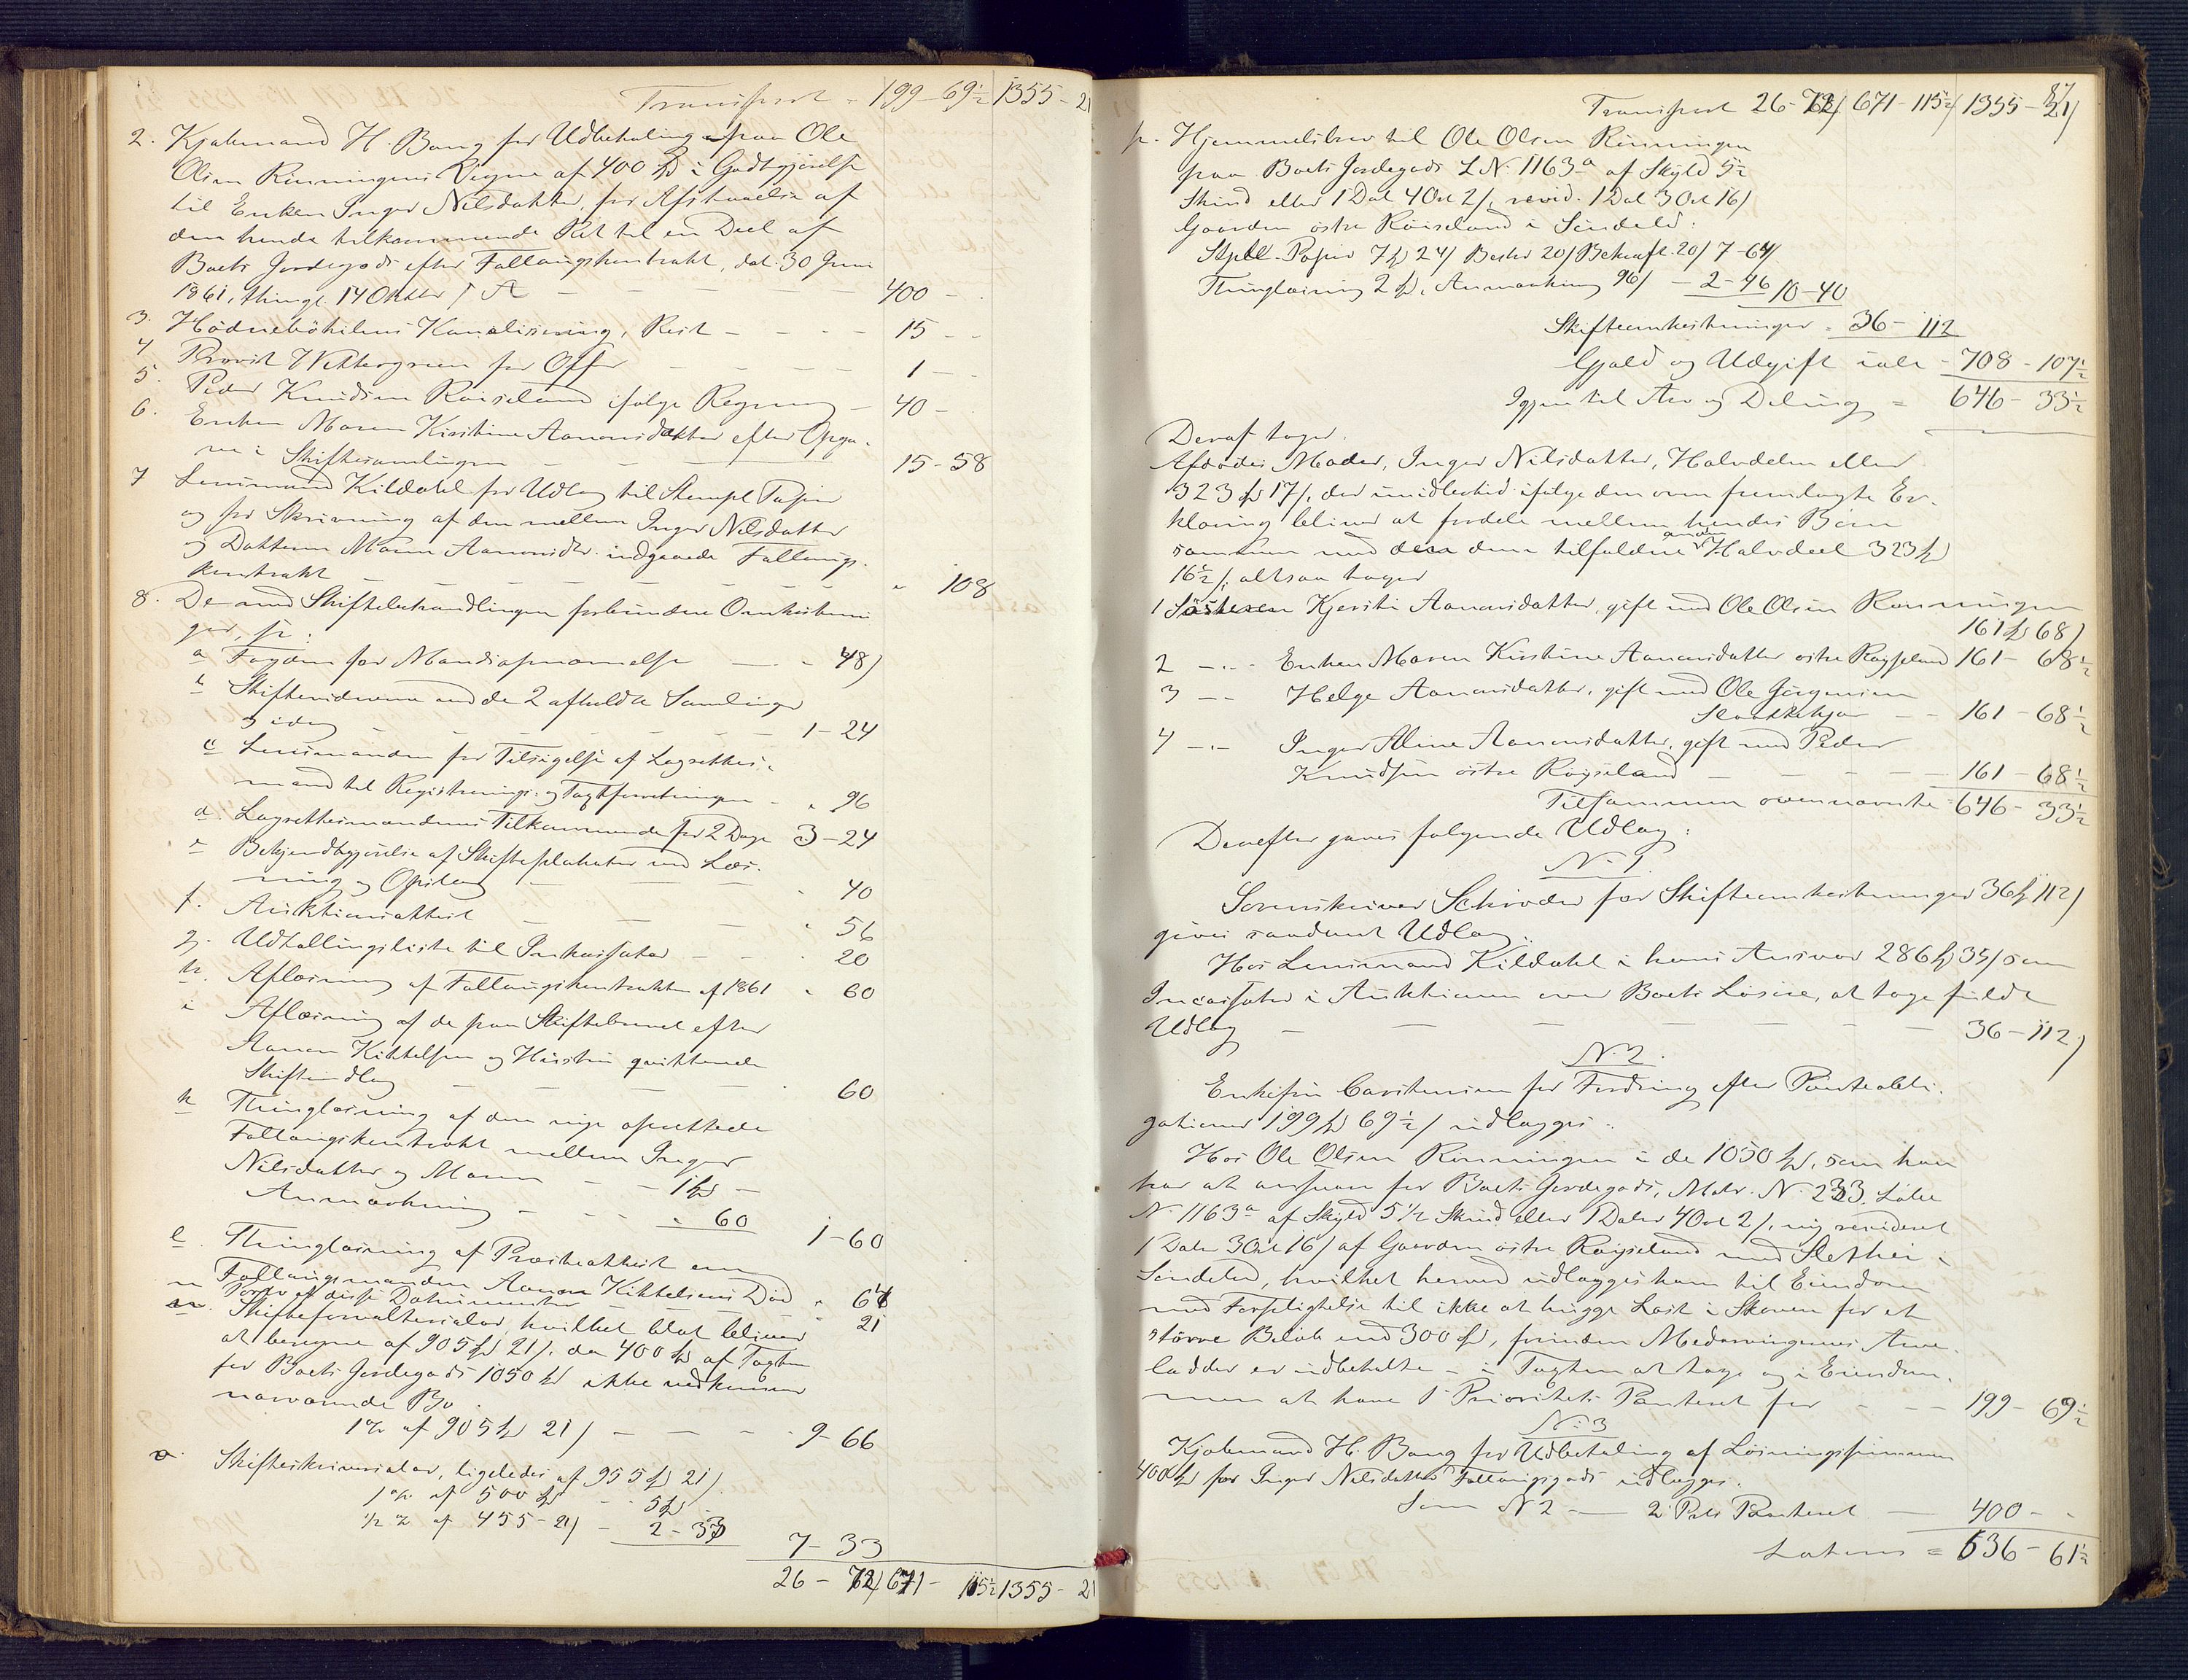 Transport = 199-69½ 1355-21
2. Kjøbmand H. Bang for Udbetaling paa Ole
Olsen Rønningens Vegne af 400 Spd i Godtgjørelse
til Enken Inger Nilsdatter, for Afstaaelse af
den hende tilkommende Ret til en Deel af
Boets Jordegods efter Føllaugskontrakt, dat. 30 Juni
1861, thingl. 14 Oktbr / A - - - 400 -
3. Hødnebøkilens Kanalisering, Rest - - - 15 - -
4 Provst Wettergreen for Offer - - - - 1 - -
5. Peder Knudsen Røiseland ifølge Regning - 40 -
6. Enken Maren Kirstine Aanonsdatter efter Opga-
ve i Skiftesamlingen - - - 15-58
7 Lensmand Kildahl for Udlæg til Stempl. Papir
og for Skrivning af den mellem Inger Nilsdatter
og Datteren Maren Aanonsdtr. indgaaede Føllaugs-
kontrakt - - - - - - - " 108
8. De med Skiftebehandlingen forbundne Omkostnin
ger, so:
a Fogden for Mandsopnævnelse - - " 48/
b Skifteridernen med de 2 afholdte Samlinger
og idag - - - - - - 1-24
c Lensmanden for Tilsigelse af Laugrettes-
mænd til Registrerings- og Taxtforretningen - " 96
d Laugrettesmændenes Tilkommende for 2 Dage 3-24
e Bekjendtgjørelse af Skifteplakater med Læs-
ning og Opslag - - - " 40
f. Auktionsattest - - " 56
g. Udtællingsliste til Inkassator - - " 20
h. Aflæsning af Føllaugskontrakten af 1861 " 60
i Aflæsning af de paa Skiftebrevet efter
Aanon Kittelsen og Hustru qvitterede
Skifteudlæg - - - - " 60
k Thinglæsning af den nye oprettede
Føllaugskontrakt mellem Inger
Nilsdatter og Maren - - 1 Spd -
Anmærkning - - - " 60 1-60
l. Thinglæsning af Præsteattest om
Føllaugsmanden Aanon Kittelsens Død " 64
m Porto af disse Dokumenter - - " 21
n. Skifteforvaltersalær, hvilket blot bliver
at beregne af 905 Spd 21/, da 400 Spd af Taxten
for Boets Jordegods 1050 Spd ikke vedkommer
nærværende Bo.
1% af 905 Spd 21/ - - - - 9-66
o Skifteskriversalær, ligeledes af 955 Spd 21/.
1% af 500 Spd - - 5 Spd
½ % af 455-21/ - 2-33 7-33
26-72/ 671-115½ 1355-21
87
Transport 26-72/ 671-115½/ 1355-21/
p. Hjemmelsbrev til Ole Olsen Rønningen
paa Boets Jordegods LN. 1163a af Skyld 5½
Skind eller 1 Dal 4 Ort 2/, revid. 1 Dal 3 Ort 16/
Gaarden østre Røiseland i Søndeled:
Stpll. Papir 7 Spd 24/ Beskr 20/ Bekræft. 20/ 7-64/
Thinglæsning 2 Spd, Anmærkning 96/ - 2-96 10-40
Skifteomkostninger = 36-112
Gjæld og Udgift ialt - 708-107½
Igjen til Arv og Deling = 646-33½
Deraf tager:
Afdødes Moder, Inger Nilsdatter, Halvdelen eller
323 Spd 17/, der imidlertid ifølge den ovenfremlagte Er-
klæring bliver at fordele mellem hendes Børn
sammen med den dem tilfaldene anden Halvdeel 323 Spd
16½/, altsaa tager
1 Søsteren Kjersti Aanonsdatter, gift med Ole Olsen Rønningen
161 Spd 68/
2 - " - Enken Maren Kirstine Aanonsdatter østre Røyseland 161-68½
3 - - Helge Aanonsdatter, gift med Ole Jørgensen
- - 161-68½
4 - " - Inger Aline Aanonsdatter, gift med Peder
Knudsen østre Røyseland - - - - 161-68½
Tilsammen ovennævnte 646-33½
Derefter gaves følgende Udlæg:
N. 1.
Sorenskriver Schrøder for Skifteomkostninger 36 Spd 112/
gives saadant Udlæg:
Hos Lensmand Kildahl i hans Ansvar 286 Spd 35/ som
Incassator i Auktionen over Boets Løsøre, at tage fuldt
Udlæg - - - - - - 36-112/
N. 2.
Enkefru Carstensen for Fordring efter Panteobli-
gationer 199 Spd 69½/ udlægges:
Hos Ole Olsen Rønningen i de 1050 Spd, som han
har at ansvare for Boets Jordegods, Matr. N. 233. Løbe
N. 1163a af Skyld 5½ Skind eller 1 Daler 4 Ort 2/, ny revideret
1 Daler 3 Ort 16/ af Gaarden østre Røyseland med Slethei i
Søndeled, hvilket herved udlægges ham til Eiendom
med Forpligtelse til ikke at hugge Last i Skoven for et
større Beløb end 300 Spd, forinden Medarvingernes Arve-
lodder er udbetalte - i Taxten at tage og i Eiendom-
men at have 1 Prioritets Panteret for - - - 199-69½
N. 3
Kjøbmand H. Bang for Udbetaling af Løsningssummen
400 Spd for Inger Nilsdatters Føllaugsgods udlægges:
Som N 2 — 2 Prts Panteret — 400 - -
Lateris = 636-61½